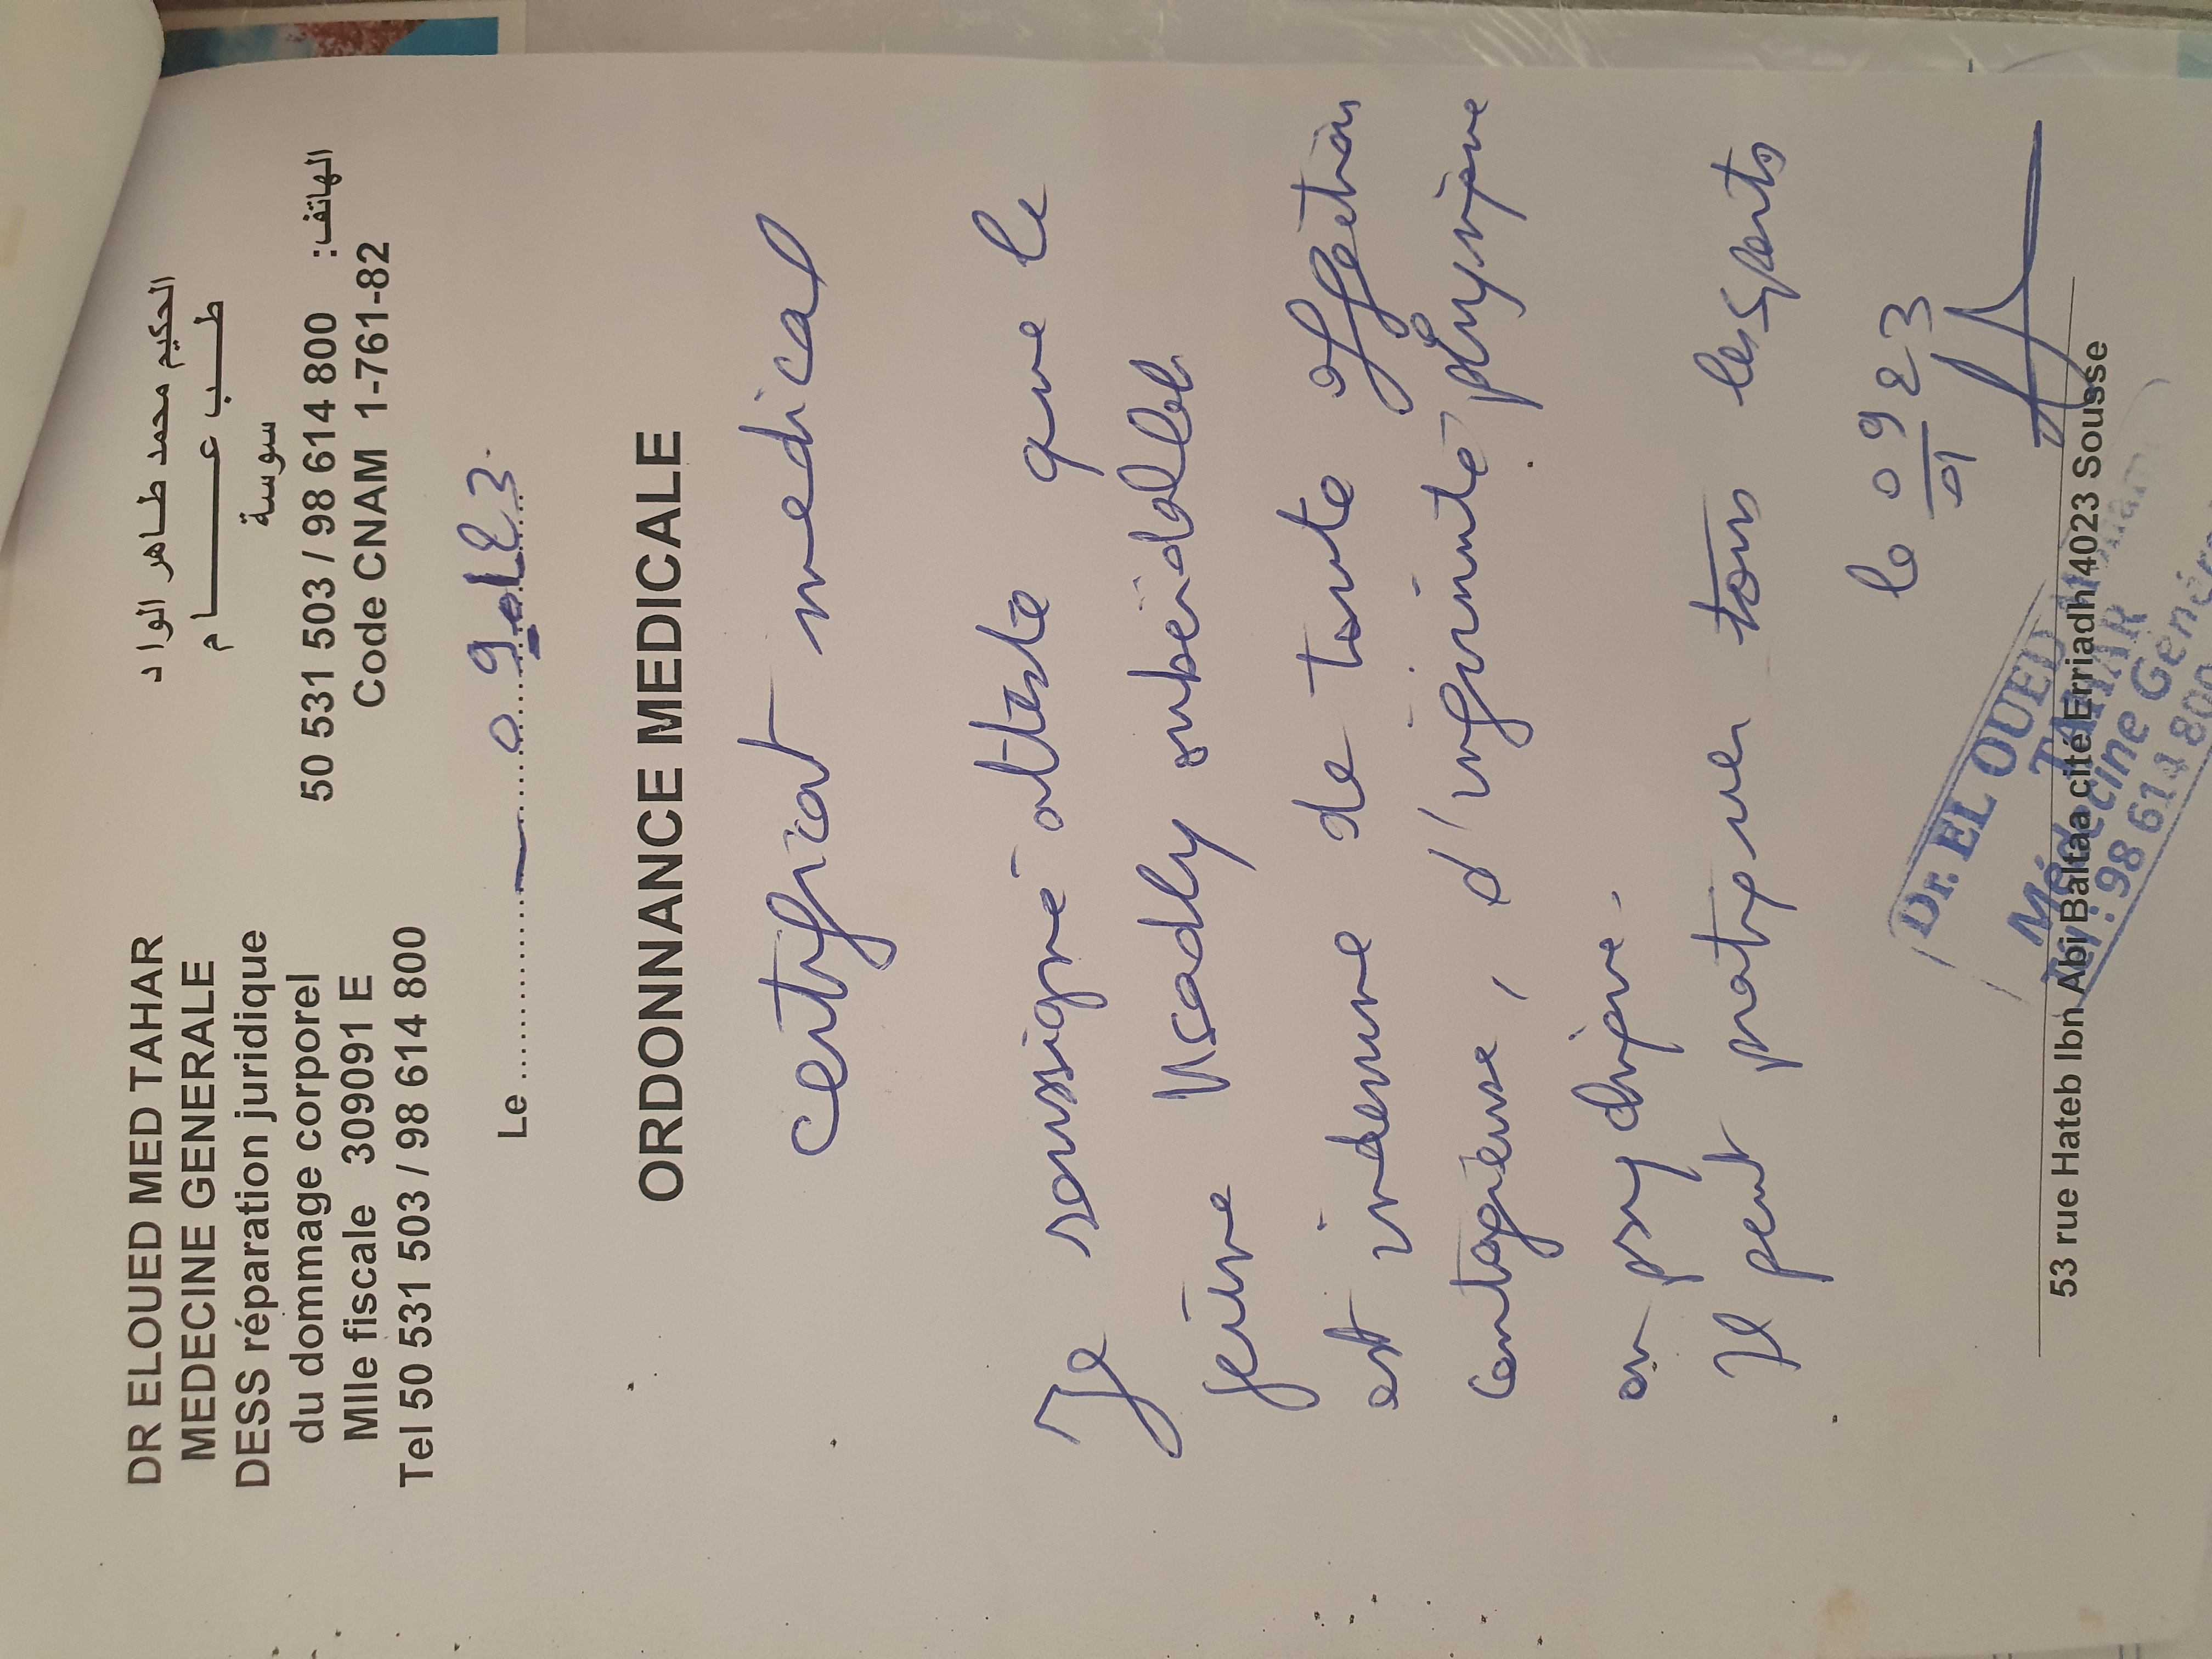 DR ELOUED MED TAHAR
MEDECINE GENERALE
DESS réparation juridique
du dommage corporel
Mlle fiscale 309091 E
Tel 50 531 503 / 98 614 800
الحكيم محمد طاهر الواد
طب عام
سوسة
50 531 503 / 98 614 800 الهاتف:
Code CNAM 1-761-82
Le
ORDONNANCE MEDICALE
Certificat medical
Je soussigné atteste que le
jeune
est indemne de toute affection
contagieuse, d'infirmité physique
ou psychique.
Il peut pratiquer tous les sports
le 09 23
01
Dr. EL OUED
TAHAR
Médecine Générale
98 614 800
53 rue Hateb Ibn Abi Baltaa cité Erriadh 4023 Sousse